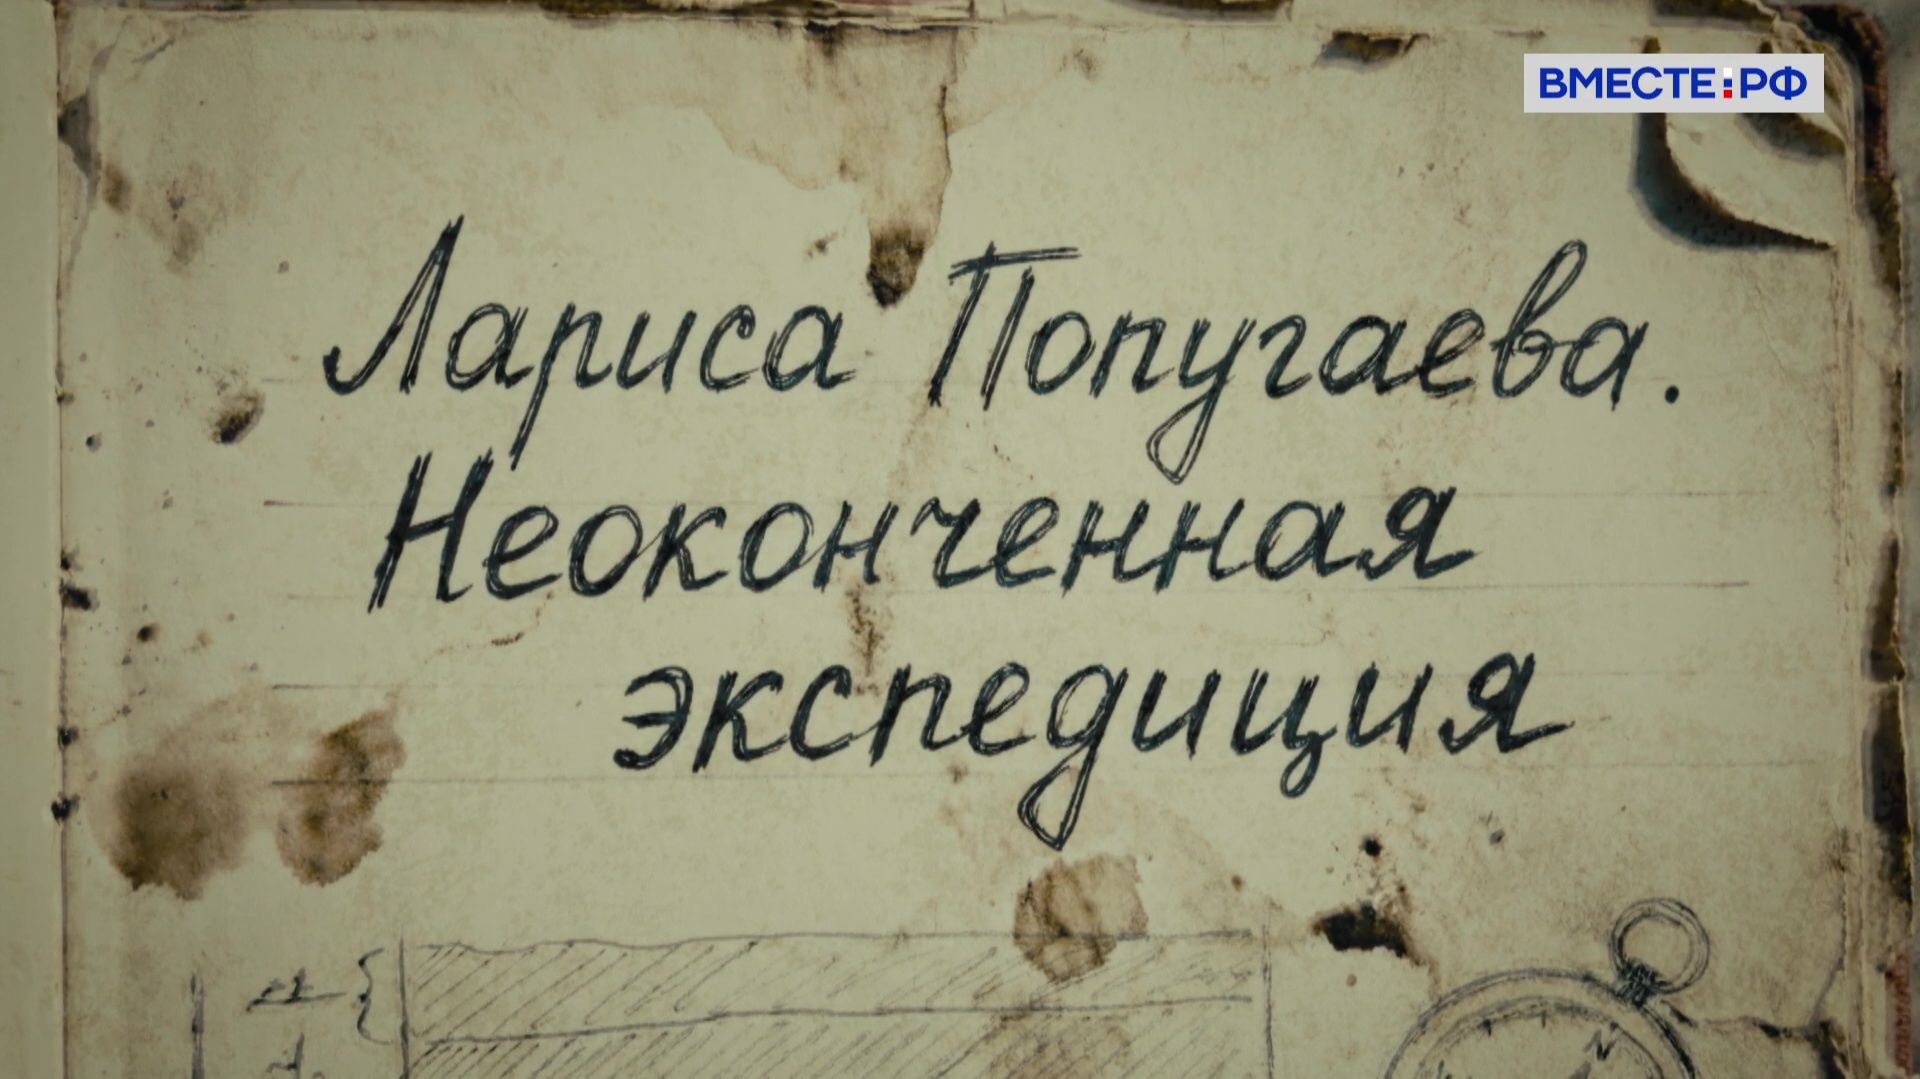 ВМЕСТЕ:РФ
Лариса Попугаева.
Неоконченная
экспедиция
N